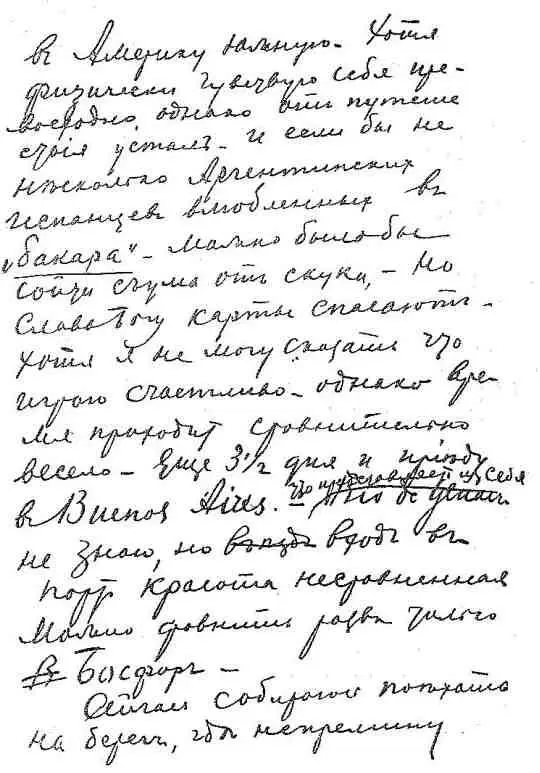 въ Америку южную. Хотя
физически чувствую себя пре-
восходно, однако отъ путеше
ствія усталъ. И если бы не
нѣсколько Аргентинскихъ
испанцевъ влюбленныхъ въ
„бакара“ - можно было бы
сойти съ ума отъ скуки, - Но
Слава Богу карты спасаютъ -
Хотя я не могу сказать что
играю счастливо - однако вре-
мя проходитъ сравнительно
весело - Еще 3 1/2 дня и пріѣду
что представляетъ изъ себя
въ Buenos Aires. -
не знаю, но въѣздъ входъ въ
портъ красота несравненная
Можно сравнить развѣ только
въ Босфоръ -
Сейчасъ собираюсь поѣхать
на берегъ, гдѣ непремину